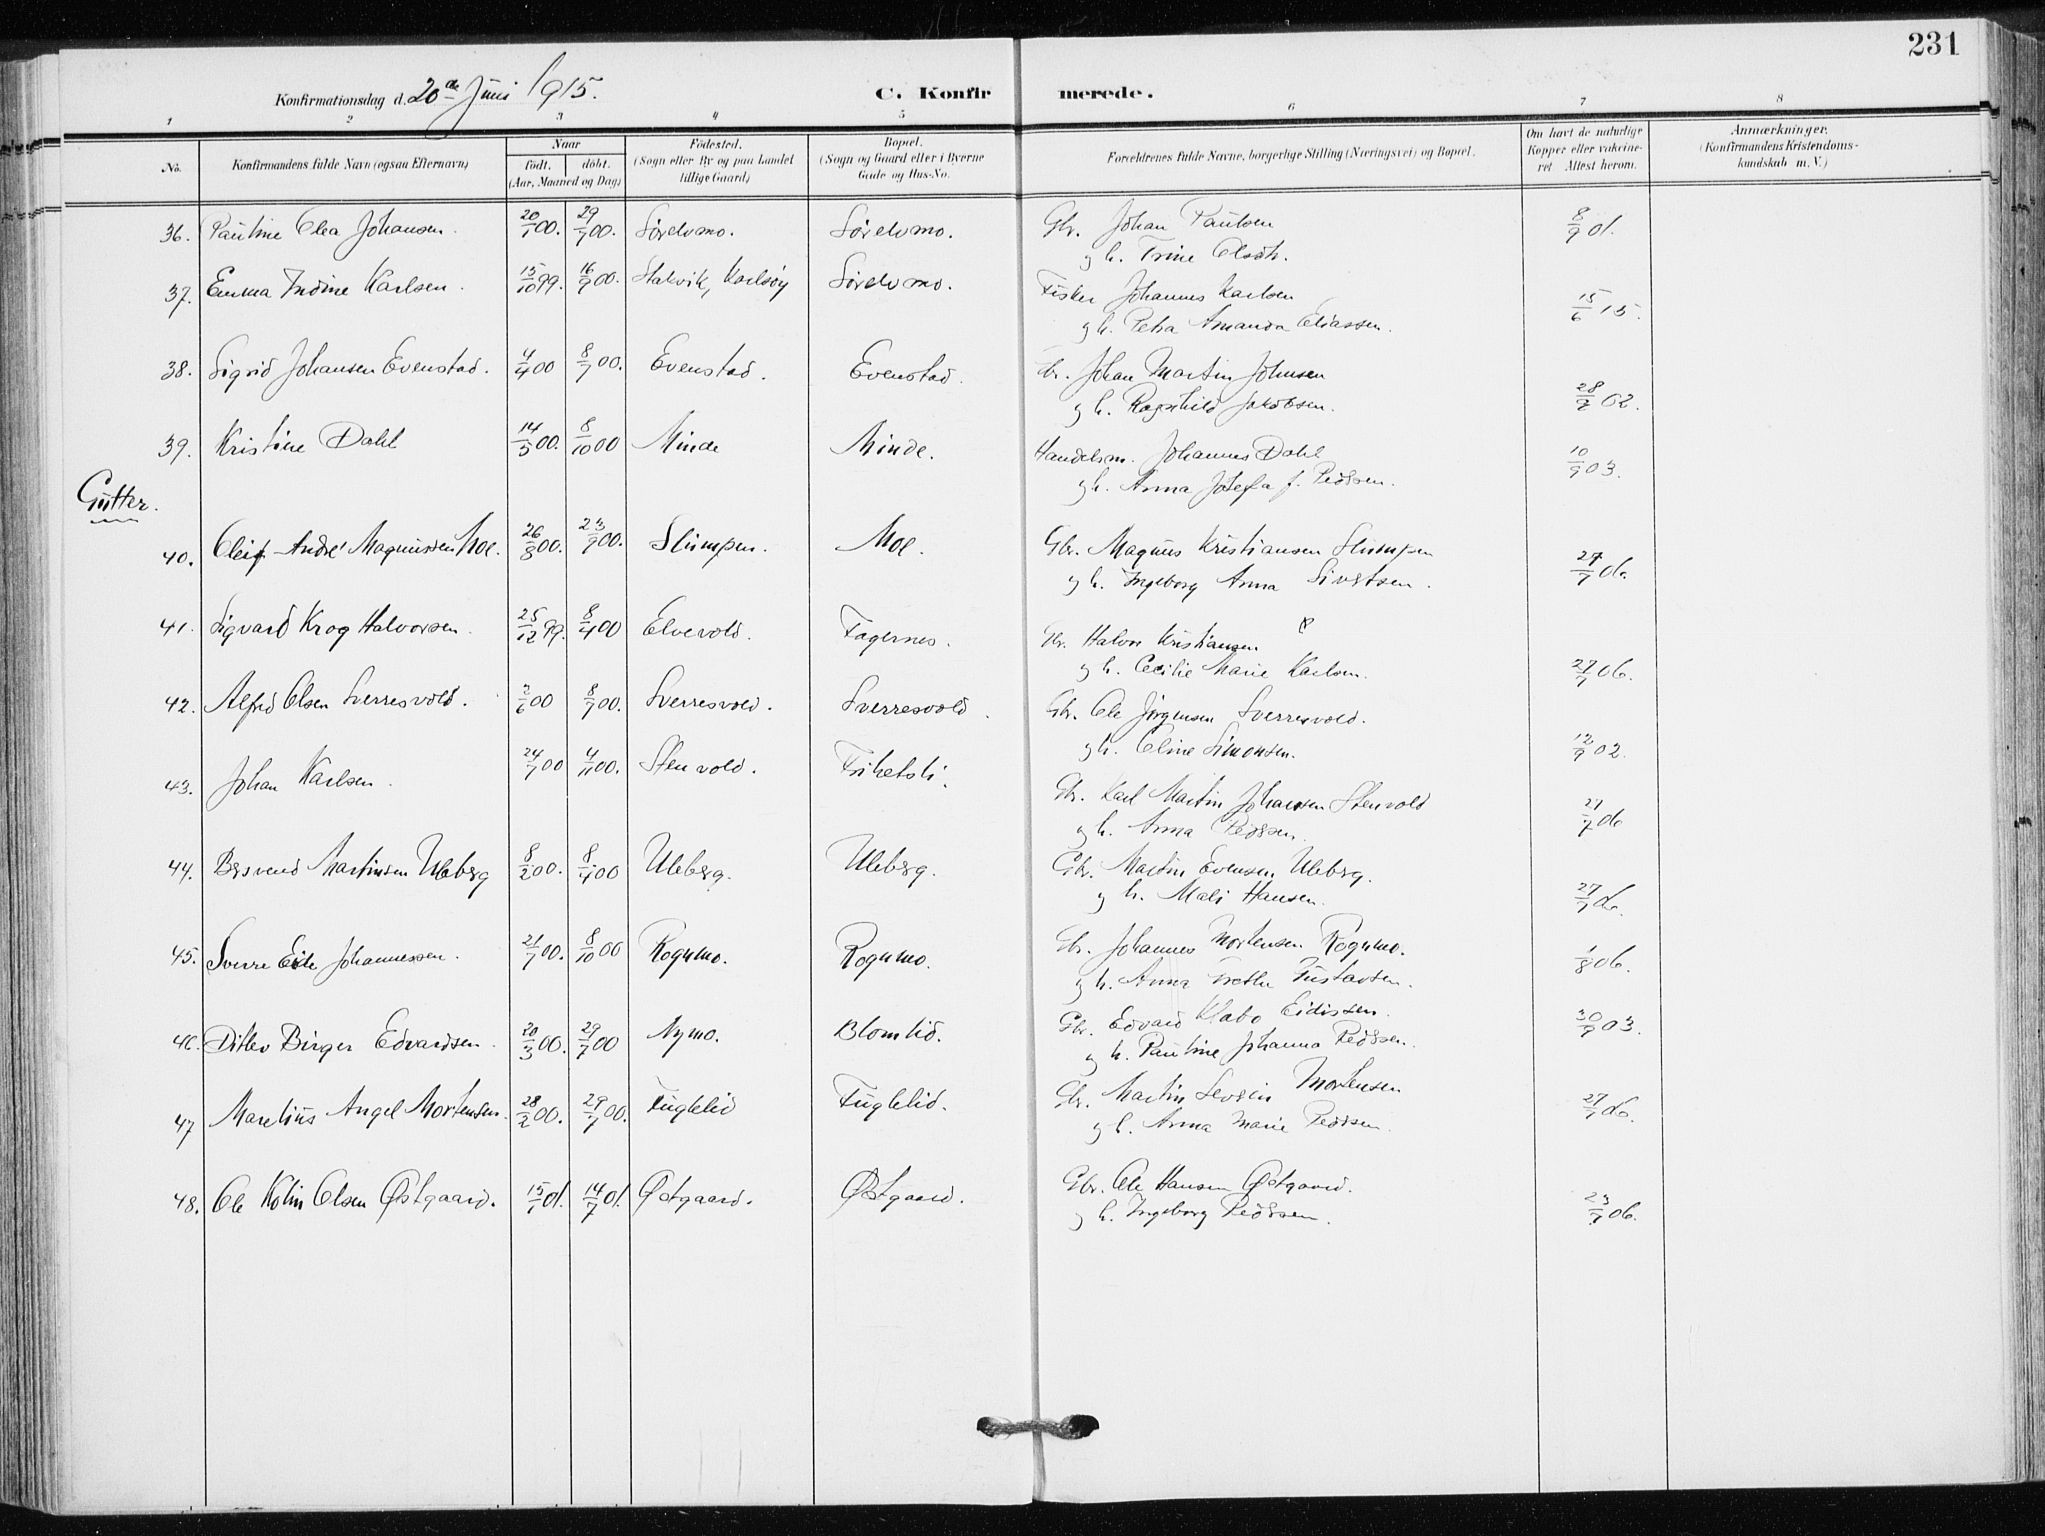 231
Konfirmationsdag d. 20de Juni 1915.
C. Konfirmerede.
1 2 3 4 5 6 7 8
No. Konfirmandens fulde Navn (ogsaa Efternavn) Naar födt. döbt. (Aar, Maaned og Dag) Födested. (Sogn eller By og paa Landet tillige Gaard) Bopæl. (Sogn og Gaard eller i Byerne Gade og Hus-No. Forældrenes fulde Navne, borgerlige Stilling (Næringsvei) og Bopæl. Om havt de naturlige Kopper eller vakcineret Attest herom. Anmærkninger. (Konfirmandens Kristendomskundskab m. V.)
36. Pauline Olea Johansen. 20/1 00. 29/7 00. Sörelvmo. Sörelvmo. Gbr. Johan Paulsen 8/9 01.
g h. Trine Olsdt.
37. Emma Indine Karlsen. 15/10 99. 16/9 00. Stakvik, Karlsöy Sörelvmo. Fisker Johannes Karlsen
g h. Petra Amanda Eliassen. 15/6 15.
38. Sigrid Johansen Evenstad. 4/4 00 8/7 00. Evenstad. Evenstad. Gbr. Johan Martin Johnsen
g h. Ragnhild Jakobsen. 28/9 02.
39. Kristine Dahl 14/5 00. 8/10 00 Minde Minde. Handelsm. Johannes Dahl 10/9 03.
g h. Anna Josefa f. Pedersen.
Gutter.
40. Oleif André Magnussen Moe. 26/8 00. 23/9 00. Slumpen. Moe. Gbr. Magnus Kristiansen Slumpen 27/7 06.
g h. Ingeborg Anna Sivertsen.
41. Sigvard Krog Halvorsen. 25/12 99. 8/4 00 Elvevold. Fagernes. Gbr. Halvor Kristiansen
g h. Cecilie Marie Karlsen. 27/7 06.
42. Alfred Olsen Sverresvold. 2/6 00 8/7 00. Sverresvold. Sverresvold. Gbr. Ole Jörgensen Sverresvold.
g h. Oline Simonsen. 12/9 02.
43. Johan Karlsen. 24/7 00 4/11 00. Stenvold. Frihetsli. Gbr. Karl Martin Johansen Stenvold
g h. Anna Pedersen. 21/7 06
44. Bersvend Martinsen Uleberg 8/2 00. 8/4 00 Uleberg. Uleberg. Gbr. Martin Evensen Uleberg.
g h. Mali Hansen. 27/7 06.
45. Sverre Eile Johannessen. 21/7 00. 8/10 00 Rognmo. Rognmo. Gbr. Johannes Mortensen Rognmo. 1/8 06.
g h. Anna Grethe Gustavsen.
46. Ditlev Birger Edvardsen. 20/3 00. 29/7 00 Nymo. Blomlid. Gbr. Edvard Klabo Eidissen. 30/9 03.
g h. Pauline Johanna Pedersen.
47 Marelius Angel Mortensen. 28/2 00. 29/7 00. Fuglelid Fuglelid. Gbr. Martin Sevrin Mortensen 27/7 06.
g h. Anna Marie Pedersen.
48. Ole Kolin Olsen Østgaard. 15/1 01. 14/7 01. Østgaard. Østgaard. Gbr. Ole Hansen Østgaard. 23/7 06.
g h. Ingeborg Pedersen.